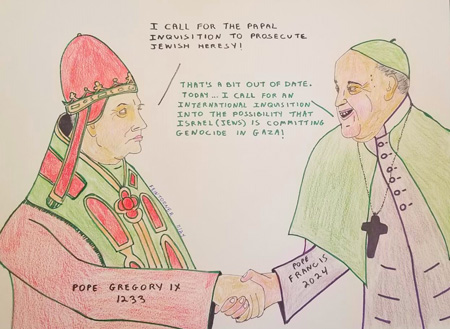 I CALL FOR THE PAPAL
INQUISITION TO PROSECUTE
JEWISH HERESY!
THAT'S A BIT OUT OF DATE.
TODAY... I CALL FOR AN
INTERNATIONAL INQUISITION
INTO THE POSSIBILITY THAT
ISRAEL (JEWS) IS COMMITTING
GENOCIDE IN GAZA!
POPE GREGORY IX
1233
POPE
FRANCIS
2024